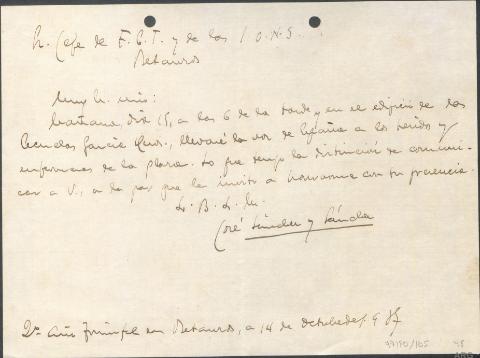 Sr. Jefe de F.E.T. y de las J.O.N.S.
Betanzos
Muy Sr. mio:
Mañana, día 15, a las 6 de la tarde y en el edificio de las
Escuelas García Hnos., llevaré la voz de España a los heridos y
enfermos de la plaza. Lo que tengo la distinción de comuni-
car a V., a la par que le invito a honrarme con su presencia.
S. B. S. M.
José Sánchez y Sánchez
2º año Triunfal en Betanzos, a 14 de Octubre de